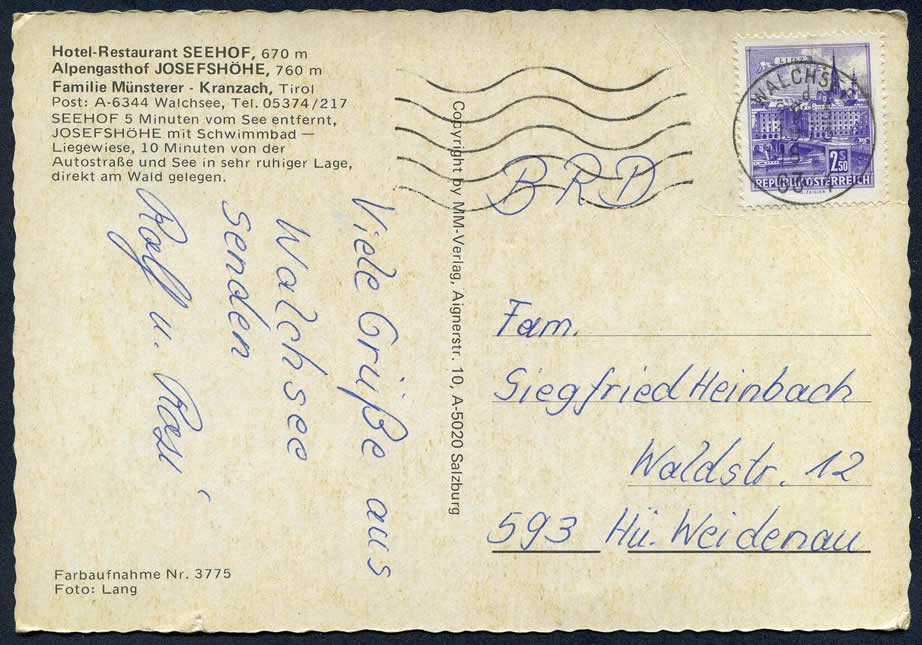 Hotel-Restaurant SEEHOF, 670 m
Alpengasthof JOSEFSHÖHE, 760 m
Familie Münsterer - Kranzach, Tirol
Post: A-6344 Walchsee, Tel. 05374/217
SEEHOF 5 Minuten vom See entfernt,
JOSEFSHÖHE mit Schwimmbad —
Liegewiese, 10 Minuten von der
Autostraße und See in sehr ruhiger Lage,
direkt am Wald gelegen.
Viele Grüße aus
Walchsee
senden
Rolf u. Rosi
Farbaufnahme Nr. 3775
Foto: Lang
Copyright by MM-Verlag, Aignerstr. 10, A-5020 Salzburg
WALCHS
LINZ
2 S 50
REPUBLIK ÖSTERREICH
BRD
Fam.
Siegfried Heinbach
Waldstr. 12
593 Hü. Weidenau